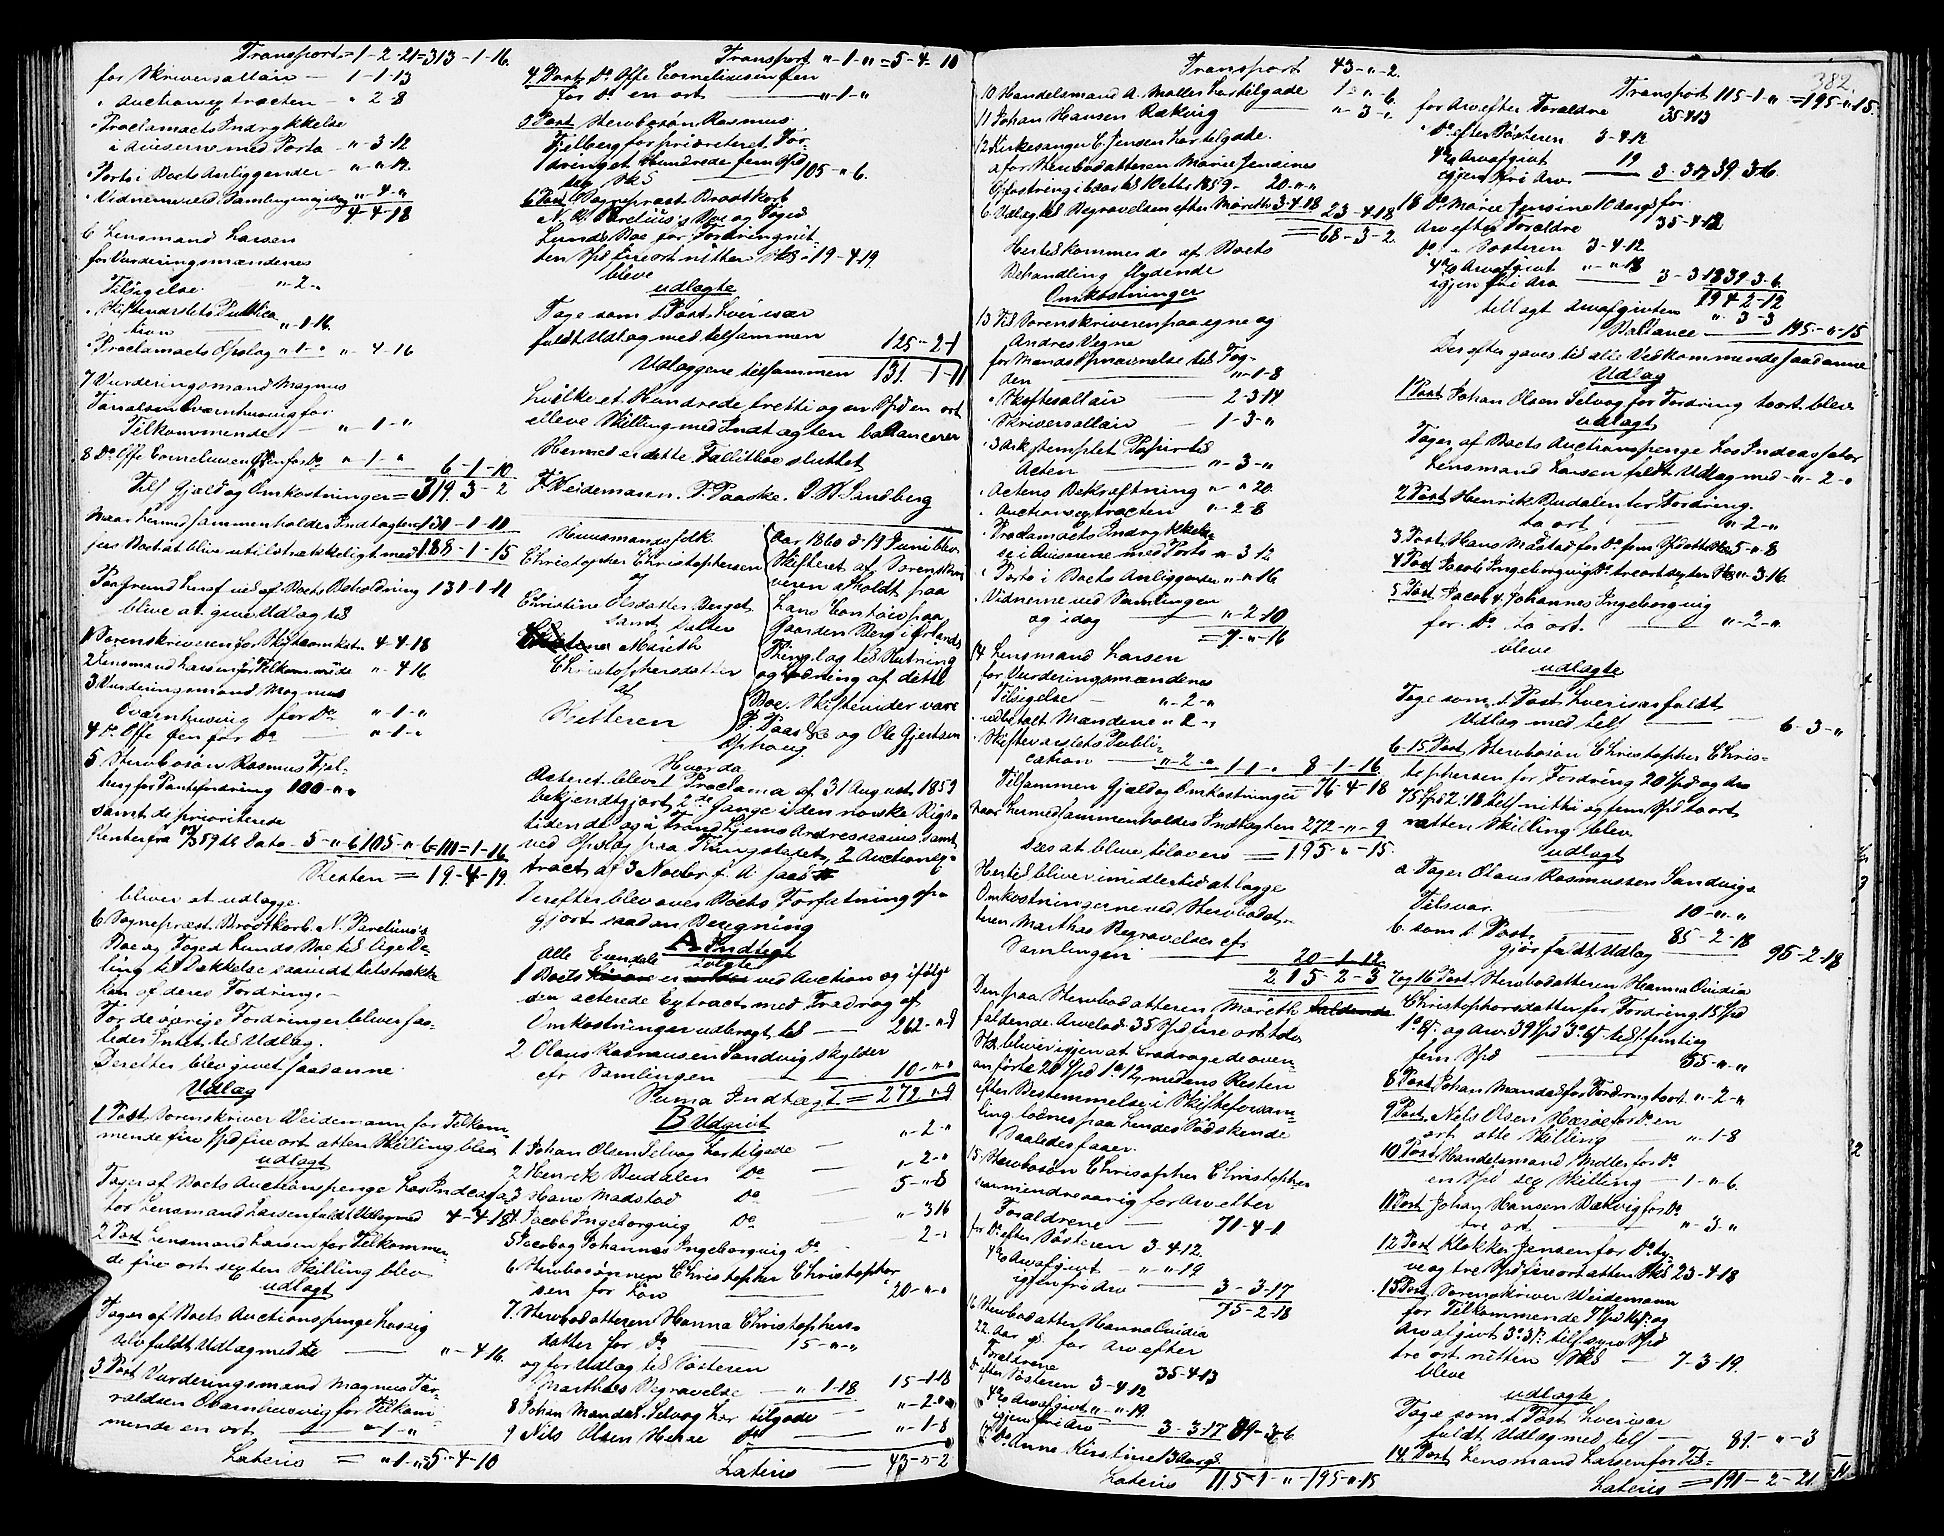 Transport = 1-2-21 = 313-1-16.
for Skriversallair — 1-1-13
" Auctionsextracten - " 2-8
" Proclamaets Indrykkelse
i Aviserne med Porto - " -3-12
" Porto i Boets Anliggender - " - " -12.
" Vidnerne ved Samlingen idag " -4- "
4-4-18
6 Lensmand Larsen
for Vurderingsmændenes
Tilsigelse " -2- "
" Skiftevarslets Publica
tion " -1-16.
" Proclamaets Opslag " -1- " " -4-16
7 Vurderingsmand Magnus
for
Tilkommende — " -1- "
8 Do Offe Corneliussen for Do " -1- " 6-1-10
Tils. Gjæld og Omkostninger = 319. 3-2
naar hermed sammenholdes Indtægten 131-1-11
sees Boet at blive utilstrækkeligt med 188-1-15
Paa Grund heraf ved af Boets Beholdning 131-1-11
blive at give Udlæg til
1 Sorenskriveren for Skifteomkstn. 4-4-18
2 Lensmand Larsen for Tilkommende " -4-16
3 Vurderingsmand Magnus
for Do " -1- "
4 Do Offe for Do — " -1- "
5 Stervbosøn Rasmus Fjel-
berg for Pantefordring 100- " "
samt de prioriterede
Renter fra 59 til Dato 5- " 6 105- " 6 = 111 = 1-16
Resten = 19-4-19.
bliver at udlægge.
6 Sognepræst Brodtkorb, N. Parelius's
Boe og Foged Lunds Boe til lige De-
ling til Dækkelse saavidt tilstrække
kan af deres Fordring. -
For de øvrige Fordringer bliver saa-
ledes Intet til Udlæg.
Derefter blev givet saadanne
Udlæg
1 Post Sorenskriver Weidemann for Tilkom-
mende fire Spd fire ort atten Skilling blev
udlagt
Tager af Boets Auctionspenge hos Incassa-
tor Lensmand Larsen fuldt Udlæg med 4-4-18
2 Post Lensmand Larsen for Tilkommen-
de fire ort sexten Skilling blev
udlagt
Tager af Boets Auctionspenge hos sig
selv fuldt Udlæg med — " -4-16.
3 Post Vurderingsmand Magnus Tar-
raldsen for Tilkom-
mende en ort — " -1- "
Lateris = " -1- " = 5-4-10
Transport " -1- " = 5-4-10
4 Post Do Offe Corneliussen
for Do en ort — " -1- "
5 Post Stervbosøn Rasmus
Fjelberg for prioriteret For-
dring et Hundrede fem Spd
sex Sk 105- " 6.
6 Post Sognepræst Brodtkorb
N. Parelius's Boe og Foged
Lunds Boe for Fordring nit-
ten Spd fire ort nitten Sk - 19-4-19.
bleve
udlagte
Tage som 1 Post hver især
fuldt Udlæg med tilsammen 125-2-1
Udlæggene tilsammen 131-1-11
hvilke et Hundrede tretti og en Spd en ort
elleve Skilling med Indtægten ballancerer
Hermed er dette Fallitboe sluttet
F. Weidemann. P. Paaske. J. W. Sandberg
Huusmandsfolk
Christopher Christophersen
og
Christine Olsdatter Berget
samt Datter
Mareth
Christophersdatter
af
Hitteren
Aar 1860 d 19 Juni blev
Skifteret af Sorenskri-
veren afholdt paa
hans Contoir paa
Gaarden Berg i Ørlands
Thinglag til Slutning
og Ordning af dette
Boe. Skiftevidner vare
P. Paaske og Ole Gjertsen
Ophaug.
Hvorda
Acteret blev 1 Proclama af 31 August 1859
bekjendtgjort 2de Gange i den norske Rigs-
tidende og i Trondhjems Adresseavis samt
ved Opslag paa Thingstedet, 2 Auctionsex-
tract af 3 Novbr f. A. saa
Derefter blev over Boets Forfatning op-
gjort saadan Beregning
A Indtægt
Alle Eiendele
1 Boets er solgte ved Auction og ifølge
den acterede Extract med Fradrag af
Omkostninger udbragt til — 262- " 9
2 Olaus Rasmussen Sandvig skylder
efr Samlingen 10- " "
Suma Indtægt = 272 " 9
B Udgivt
1. Johan Olsen Selvog har tilgode — " -2- "
2 Henrik Budalen Do — " -2- "
3 Hans Madstad Do — 5- " 8
4. Jacob Ingeborgvig Do — " -3 16
5 Jacob og Johannes Ingeborgvig Do - 2- "
6 Stervbosønnen Christopher Christopher-
sen for Løn 20- " "
7. Stervbodatteren Hanna Christophers-
datter for Do — 15- " "
og for Udlæg til Søsteren
Marthes Begravelse — " 1-18 15-1-18
8 Johan Mandal Selvog har tilgode " -2- "
9 Nils Olsen Herøe Do " -1-8
Lateris — 43- " -2
Transport 43- " -2.
10 Handelsmand A. Møller har tilgode 1- " -6.
11 Johan Hansen Rakvåg " -3- "
12 Kirkesanger C. Jensen har tilgode.
a for Stervbodatteren Marie Jensines
Opfostring i et Aar til 10 1859 - 20- " "
b Udlæg til Begravelsen efter Mareth 3-4-18 23-4-18
= 68-3-2.
Hertil kommer de af Boets
Behandling flydende
Omkostninger
13 Til Sorenskriveren paa egne og
Andres Vegne
for Mands Opnævnelse til Fog-
den " -1-8
" Skiftesallair — 2-3 14
" Skriversallair — 1-3- "
" 3 Ark stemplet Papir til
Acten — " -3- "
" Actens Bekræftning " " 20
" Auctionsextracten " -2-8
" Proclamaets Indrykkel-
se i Aviserne med Porto " 3 12
" Porto i Boets Anliggender " " 16
" Vidnerne ved Samlingen
og idag " -2-10
= 7- " -16
14 Lensmand Larsen
for Vurderingsmændenes
Tilsigelse — " -2- "
" udbetalt Mændene " 2- "
" Skiftevarslets Publi-
cation — " -2- " 1-1- " 8-1-16
Tilsammen Gjæld og Omkostninger = 76-4-18
naar hermed sammenholdes Indtægten 272- " -9
sees at blive tilovers = 195- " -15.
Hertil bliver imidlertid at lægge
Omkostningerne ved Stervbodat-
teren Marthas Begravelse efr
Samlingen — 20-1-12
215-2-3
Den paa Stervbodatteren Mareth
faldende Arvelod 35 Spd fire ort tolv
Sk bliver igjen at fradrage de oven-
anførte 20 Spd 1 o 12 medens Resten
efter Bestemmelse i Skifteforsam-
ling lodnes paa hendes Sødskende
Saaledes faaer:
15. Stervbosøn Christopher Christopher-
sen mindreaarig for Arv efter
Forældrene — 71-4-1
for Do efter Søsteren 3-4-12.
4% Arveafgivt — " - " -19
igjen fri Arv 3-3-17
75-2-18
16 Stervbodatter Hanna Ovidia
22 Aar gl. for Arv efter
Forældrene 35-4-13
Do efter Søsteren 3-4-12
4% Arveafgivt " - " -19.
igjen fri Arv 3-3-17 39-3-6
17 Do Anne Kirstine 13 Aar gl.
Lateris 115-1- " - 195 " -15
382.
Transport 115-1- " = 195- " 15.
for Arv efter Forældre 35-4-13
" Do efter Søsteren 3-4-12
4% Arveafgivt 19
igjen fri Arv — 3-3-17 39. 3-6.
18 Do Marie Jensine 10 Aar gl for
Arv efter Forældre 35-4-12
Do " Søsteren 3-4-12
4% Arveafgivt " - " -18
igjen fri Arv 3-3-18 39 3-6.
194 2-12
tillagt Arveafgivten " 3-3
Ballance 195- " -15
Derefter gaves til alle Vedkommende saadanne
Udlæg
1 Post Johan Olsen Selvog for Fordring to ort blev
udlagt
Tager af Boets Auctionspenge hos Incassator
Lensmand Larsen fuldt Udlæg med - " -2- "
2 Post Henrik Budalen for Fordring.
to ort — " -2- "
3 Post Hans Madstad for Do fem Spd otte Sk 5- " 8
4 Post Jacob Ingeborgvig Do tre ort sexten Sk " 3-16.
5 Post Jacob & Johannes Ingeborgvig
for Do to ort. — " -2- "
bleve
udlagte
Tage som 1 Post hver især fuldt
Udlæg med tils. — 6-3- "
6-15 Post Stervbosøn Christopher Chris-
tophersen for Fordring 20 Spd og Arv
75 Spd 2: 18 tils nitti og fem Spd to ort
atten Skilling blev
udlagt
a Tager Olaus Rasmussen Sandvigs
Tilsvar — 10- " "
b. som 1 Post — 85-2-18
gjør fuldt Udlæg — 95-2-18
7 og 16 Post Stervbodatteren Hanna Ovidia
Christophersdatter for Fordring 15 Spd
og Arv 39 Spd 3 o 6 tils femti og
fem Spd — 55- " "
8 Post Johan Mandal for Fordring to ort " -2- "
9 Post. Nils Olsen Herøe for Do en
ort otte Skilling — " -1-8
10 Post Handelsmand Møller for Do
en Spd sex Skilling — 1- " -6.
11 Post Johan Hansen Rakvig for Do
tre ort — " -3- "
12 Post Klokker Jensen for Do ty-
ve og tre Spd fire ort atten Sk 23-4-18
13 Post Sorenskriver Weidemann
for Tilkommende 7 Spd og
Arveafgivt 3 o 3 tils syv Spd
tre ort nitten Sk — 7-3-19.
bleve
udlagte
Tage som 1 Post hver især
fuldt Udlæg med tils — 89- " -3
14 Post Lensmand Larsen for Til-
Lateris = 191-2-21